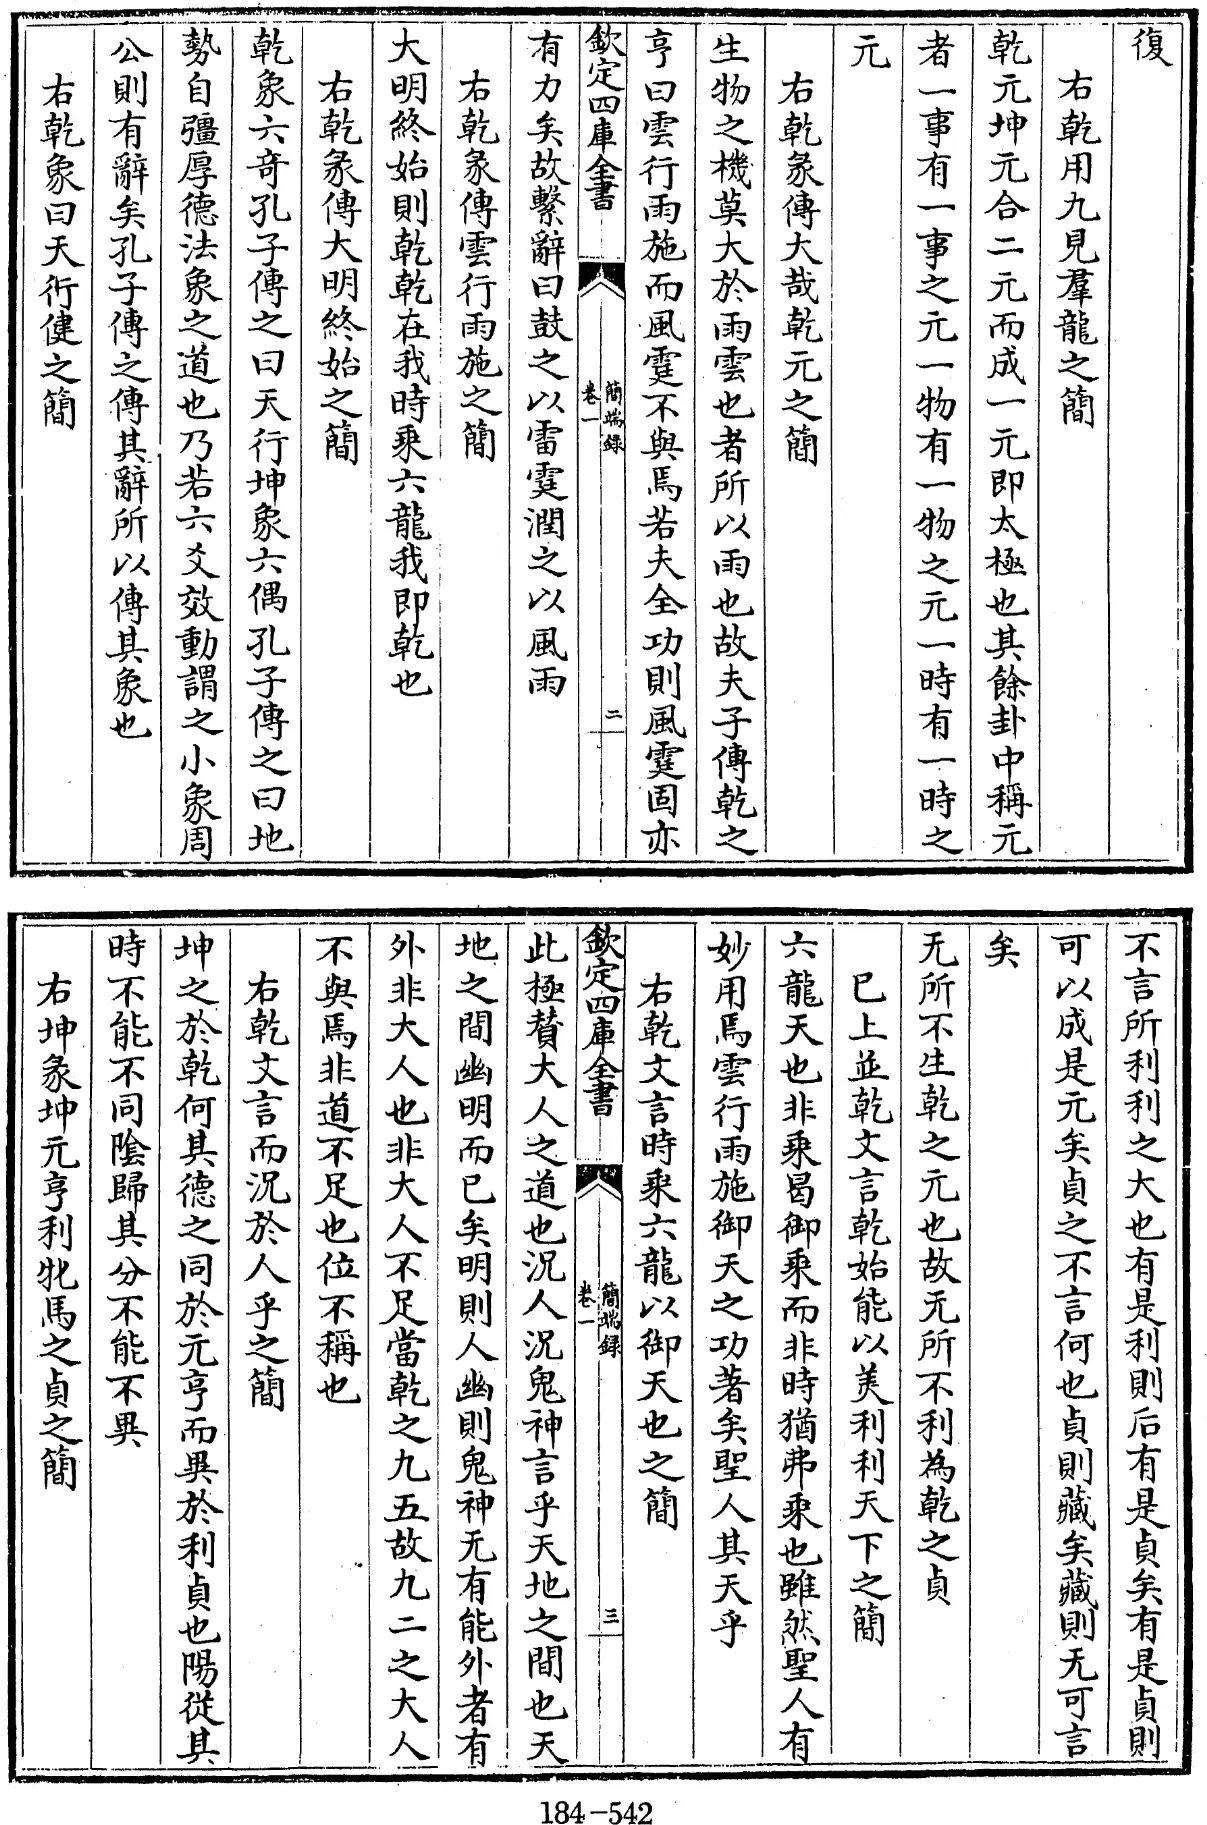 復
右乾用九見羣龍之簡
乾元坤元合二元而成一元即太極也其餘卦中稱元
者一事有一事之元一物有一物之元一時有一時之
元
右乾彖傳大哉乾元之簡
生物之機莫大於雨雲也者所以雨也故夫子傳乾之
亨曰雲行雨施而風霆不與焉若夫全功則風霆固亦
欽定四庫全書
簡端録
卷一
二
有力矣故繫辭曰鼓之以雷霆潤之以風雨
右乾彖傳雲行雨施之簡
大明終始則乾乾在我時乘六龍我即乾也
右乾彖傳大明終始之簡
乾象六奇孔子傳之曰天行坤象六偶孔子傳之曰地
勢自彊厚德法象之道也乃若六爻效動謂之小象周
公則有辭矣孔子傳之傳其辭所以傳其象也
右乾象曰天行健之簡
不言所利利之大也有是利則后有是貞矣有是貞則
可以成是元矣貞之不言何也貞則藏矣藏則无可言
矣
无所不生乾之元也故无所不利為乾之貞
已上並乾文言乾始能以美利利天下之簡
六龍天也非乘曷御乘而非時猶弗乘也雖然聖人有
妙用焉雲行雨施御天之功著矣聖人其天乎
右乾文言時乘六龍以御天也之簡
欽定四庫全書
簡端録
卷一
三
此極贊大人之道也況人況鬼神言乎天地之間也天
地之間幽明而已矣明則人幽則鬼神无有能外者有
外非大人也非大人不足當乾之九五故九二之大人
不與焉非道不足也位不稱也
右乾文言而況於人乎之簡
坤之於乾何其德之同於元亨而異於利貞也陽從其
時不能不同陰歸其分不能不異
右坤彖坤元亨利牝馬之貞之簡
184-542